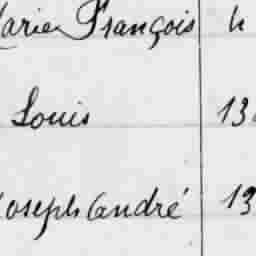 Marie François 4
Louis 13
Joseph André 13